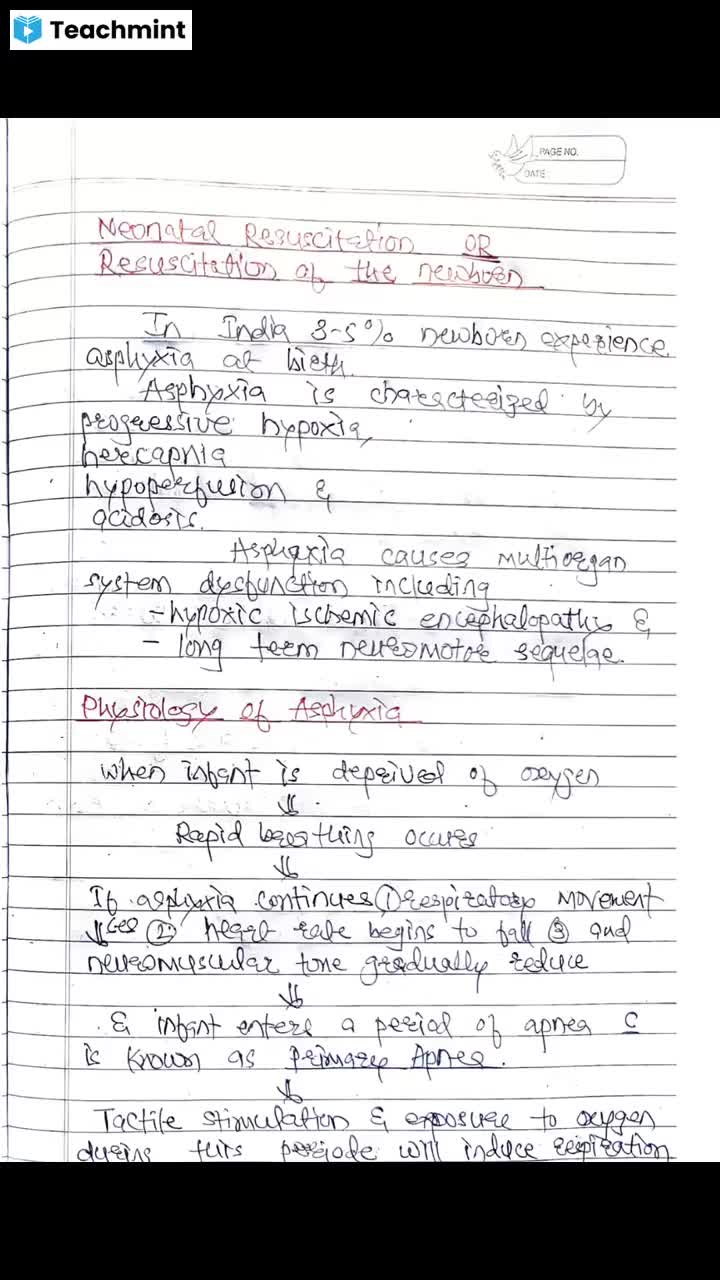 Teachmint
PAGE NO.
DATE:
Neonatal Resuscitation OR
Resuscitation of the newborn
In India 3-5% newborn experience
asphyxia at birth.
Asphyxia is characterized by
progressive hypoxia,
hercapnia
hypoperfusion &
acidosis.
Asphyxia causes multiorgan
system dysfunction including
- hypoxic ischemic encephalopathy &
- long term neuromotor sequelae.
Physiology of Asphyxia
when infant is deprived of oxygen
⇓
Rapid breathing occurs
⇓
If asphyxia continues ① respiratory movement
↓ces ② heart rate begins to fall ③ and
neuromuscular tone gradually reduce
⇓
& infant enters a period of apnea c
is known as Primary Apnea.
⇓
Tactile stimulation & exposure to oxygen
during this periode will induce respiration